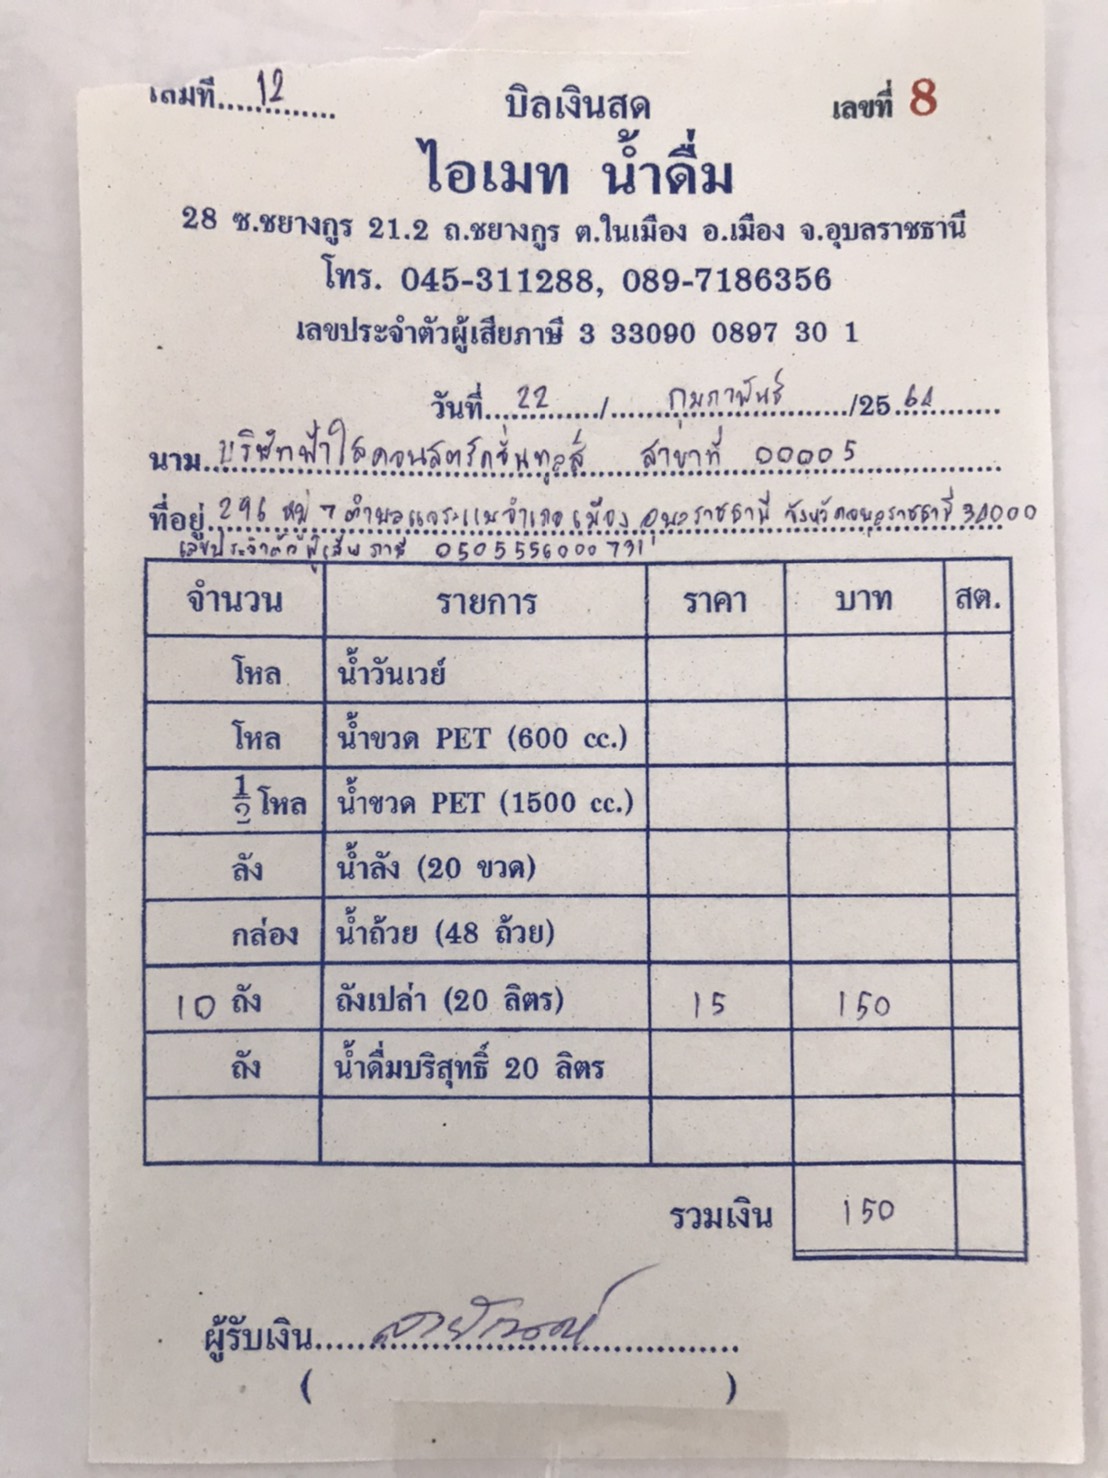 เล่มที่ 12 บิลเงินสด เลขที่ 8
ไอเมท น้ำดื่ม
28 ซ.ชยางกูร 21.2 ถ.ชยางกูร ต.ในเมือง อ.เมือง จ.อุบลราชธานี
โทร. 045-311288, 089-7186356
เลขประจำตัวผู้เสียภาษี 3 33090 0897 30 1
วันที่ 22 / กุมภาพันธ์ /25 64
นาม บริษัทฟ้าใสคอนสตรัคชั่นทูลส์ สาขาที่ 00005
ที่อยู่ 296 หมู่ 7 ตำบลแจระแมอำเภอเมืองอุบลราชธานี จังหวัดอุบลราชธานี 34000
เลขประจำตัวผู้เสียภาษี 0505556000731
จำนวน รายการ ราคา บาท สต.
โหล น้ำวันเวย์
โหล น้ำขวด PET (600 cc.)
1/2 โหล น้ำขวด PET (1500 cc.)
ลัง น้ำลัง (20 ขวด)
กล่อง น้ำถ้วย (48 ถ้วย)
10 ถัง ถังเปล่า (20 ลิตร) 15 150
ถัง น้ำดื่มบริสุทธิ์ 20 ลิตร
รวมเงิน 150
ผู้รับเงิน
( )